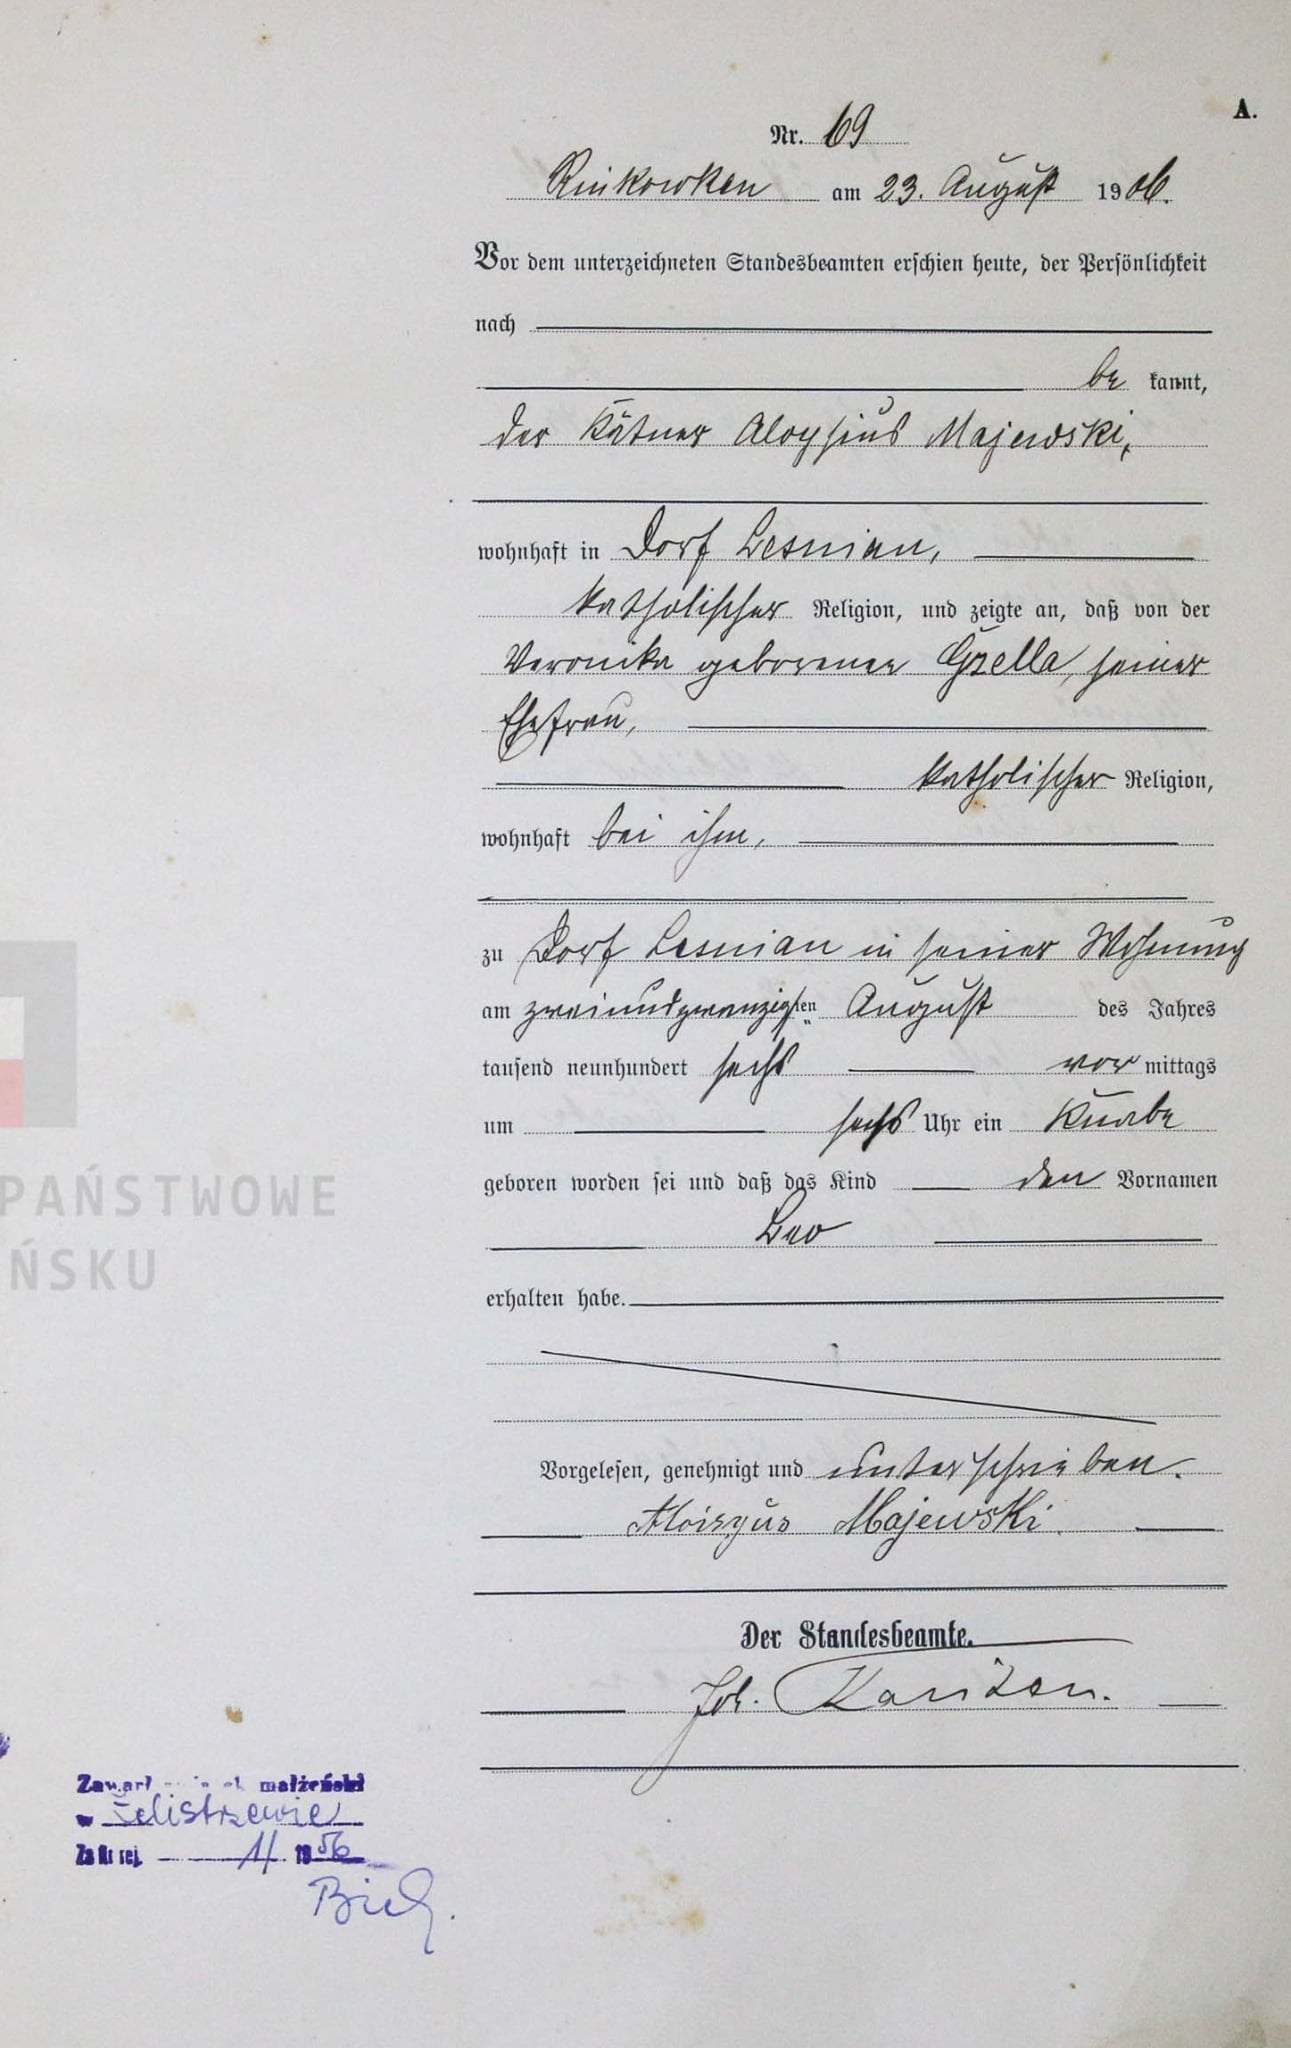 A.
Nr. 69
Rinkowken am 23. August 1906.
Vor dem unterzeichneten Standesbeamten erschien heute, der Persönlichkeit
nach
be kannt,
der Kätner Aloysius Majewski,
wohnhaft in Dorf Lesnian,
katholischer Religion, und zeigte an, daß von der
Veronika geborener Grzella, seiner
Ehefrau,
katholischer Religion,
wohnhaft bei ihm,
zu Dorf Lesnian in seiner Wohnung
am zweiundzwanzigsten August des Jahres
tausend neunhundert sechs vor mittags
um sechs Uhr ein Knabe
geboren worden sei und daß das Kind den Vornamen
Leo
erhalten habe.
Vorgelesen, genehmigt und unterschrieben.
Aloizyus Majewski.
Der Standesbeamte.
Joh.
PAŃSTWOWE
ŃSKU
małżeński
w Żelistrzewie
1/ 1956